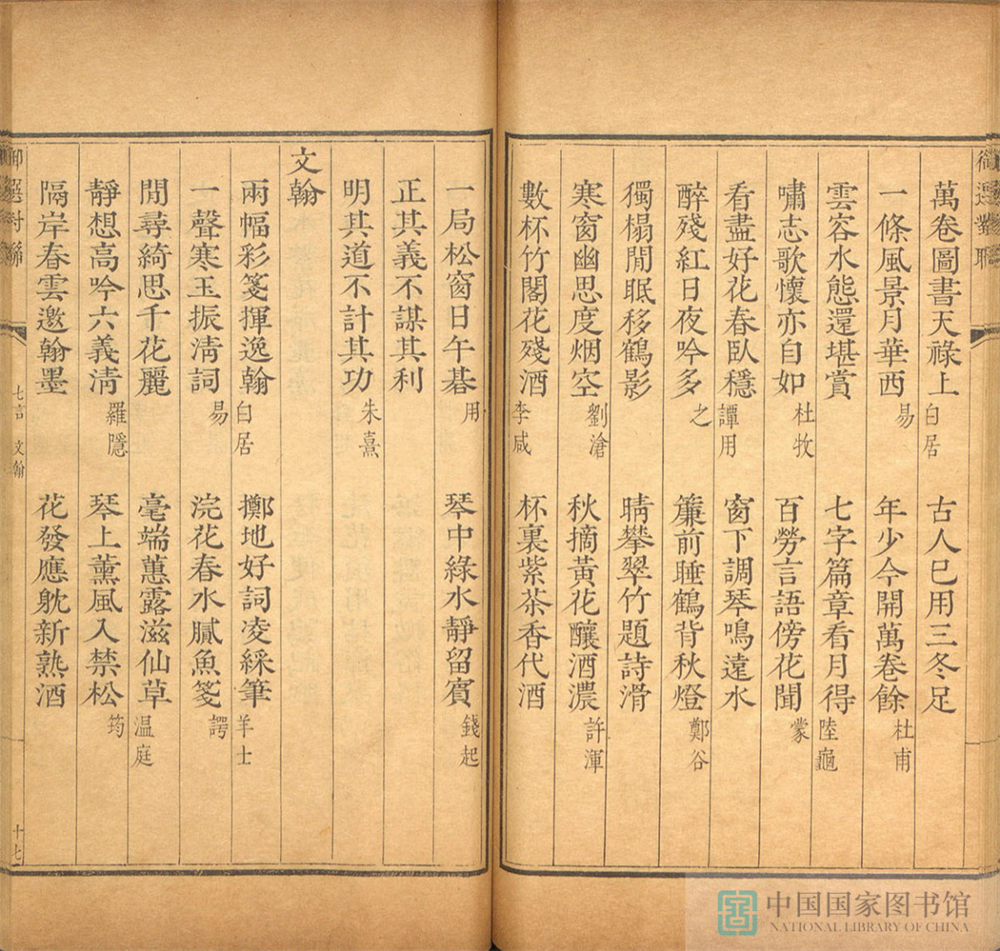 萬卷圖書天祿上 白居 古人巳用三冬足
一條風景月華西 易 年少今開萬卷餘 杜甫
雲容水態還堪賞 七字篇章看月得 陸龜
嘯志歌懷亦自如 杜牧 百勞言語傍花聞 蒙
看盡好花春臥穩 譚用 窗下調琴鳴遠水
醉殘紅日夜吟多 之 簾前睡鶴背秋燈 鄭谷
獨榻閒眠移鶴影 晴攀翠竹題詩滑
寒窗幽思度烟空 劉滄 秋摘黃花釀酒濃 許渾
數杯竹閣花殘酒 李咸 杯裏紫茶香代酒
一局松窗日午碁 用 琴中綠水靜留賓 錢起
正其義不謀其利
明其道不計其功 朱熹
文翰
兩幅彩箋揮逸翰 白居 擲地好詞凌綵筆 羊士
一聲寒玉振清詞 易 浣花春水膩魚箋 諤
閒尋綺思千花麗 毫端蕙露滋仙草 温庭
靜想高吟六義清 羅隱 琴上薰風入禁松 筠
隔岸春雲邀翰墨 花發應躭新熟酒
七言 文翰 十七
中国国家图书馆
NATIONAL LIBRARY OF CHINA